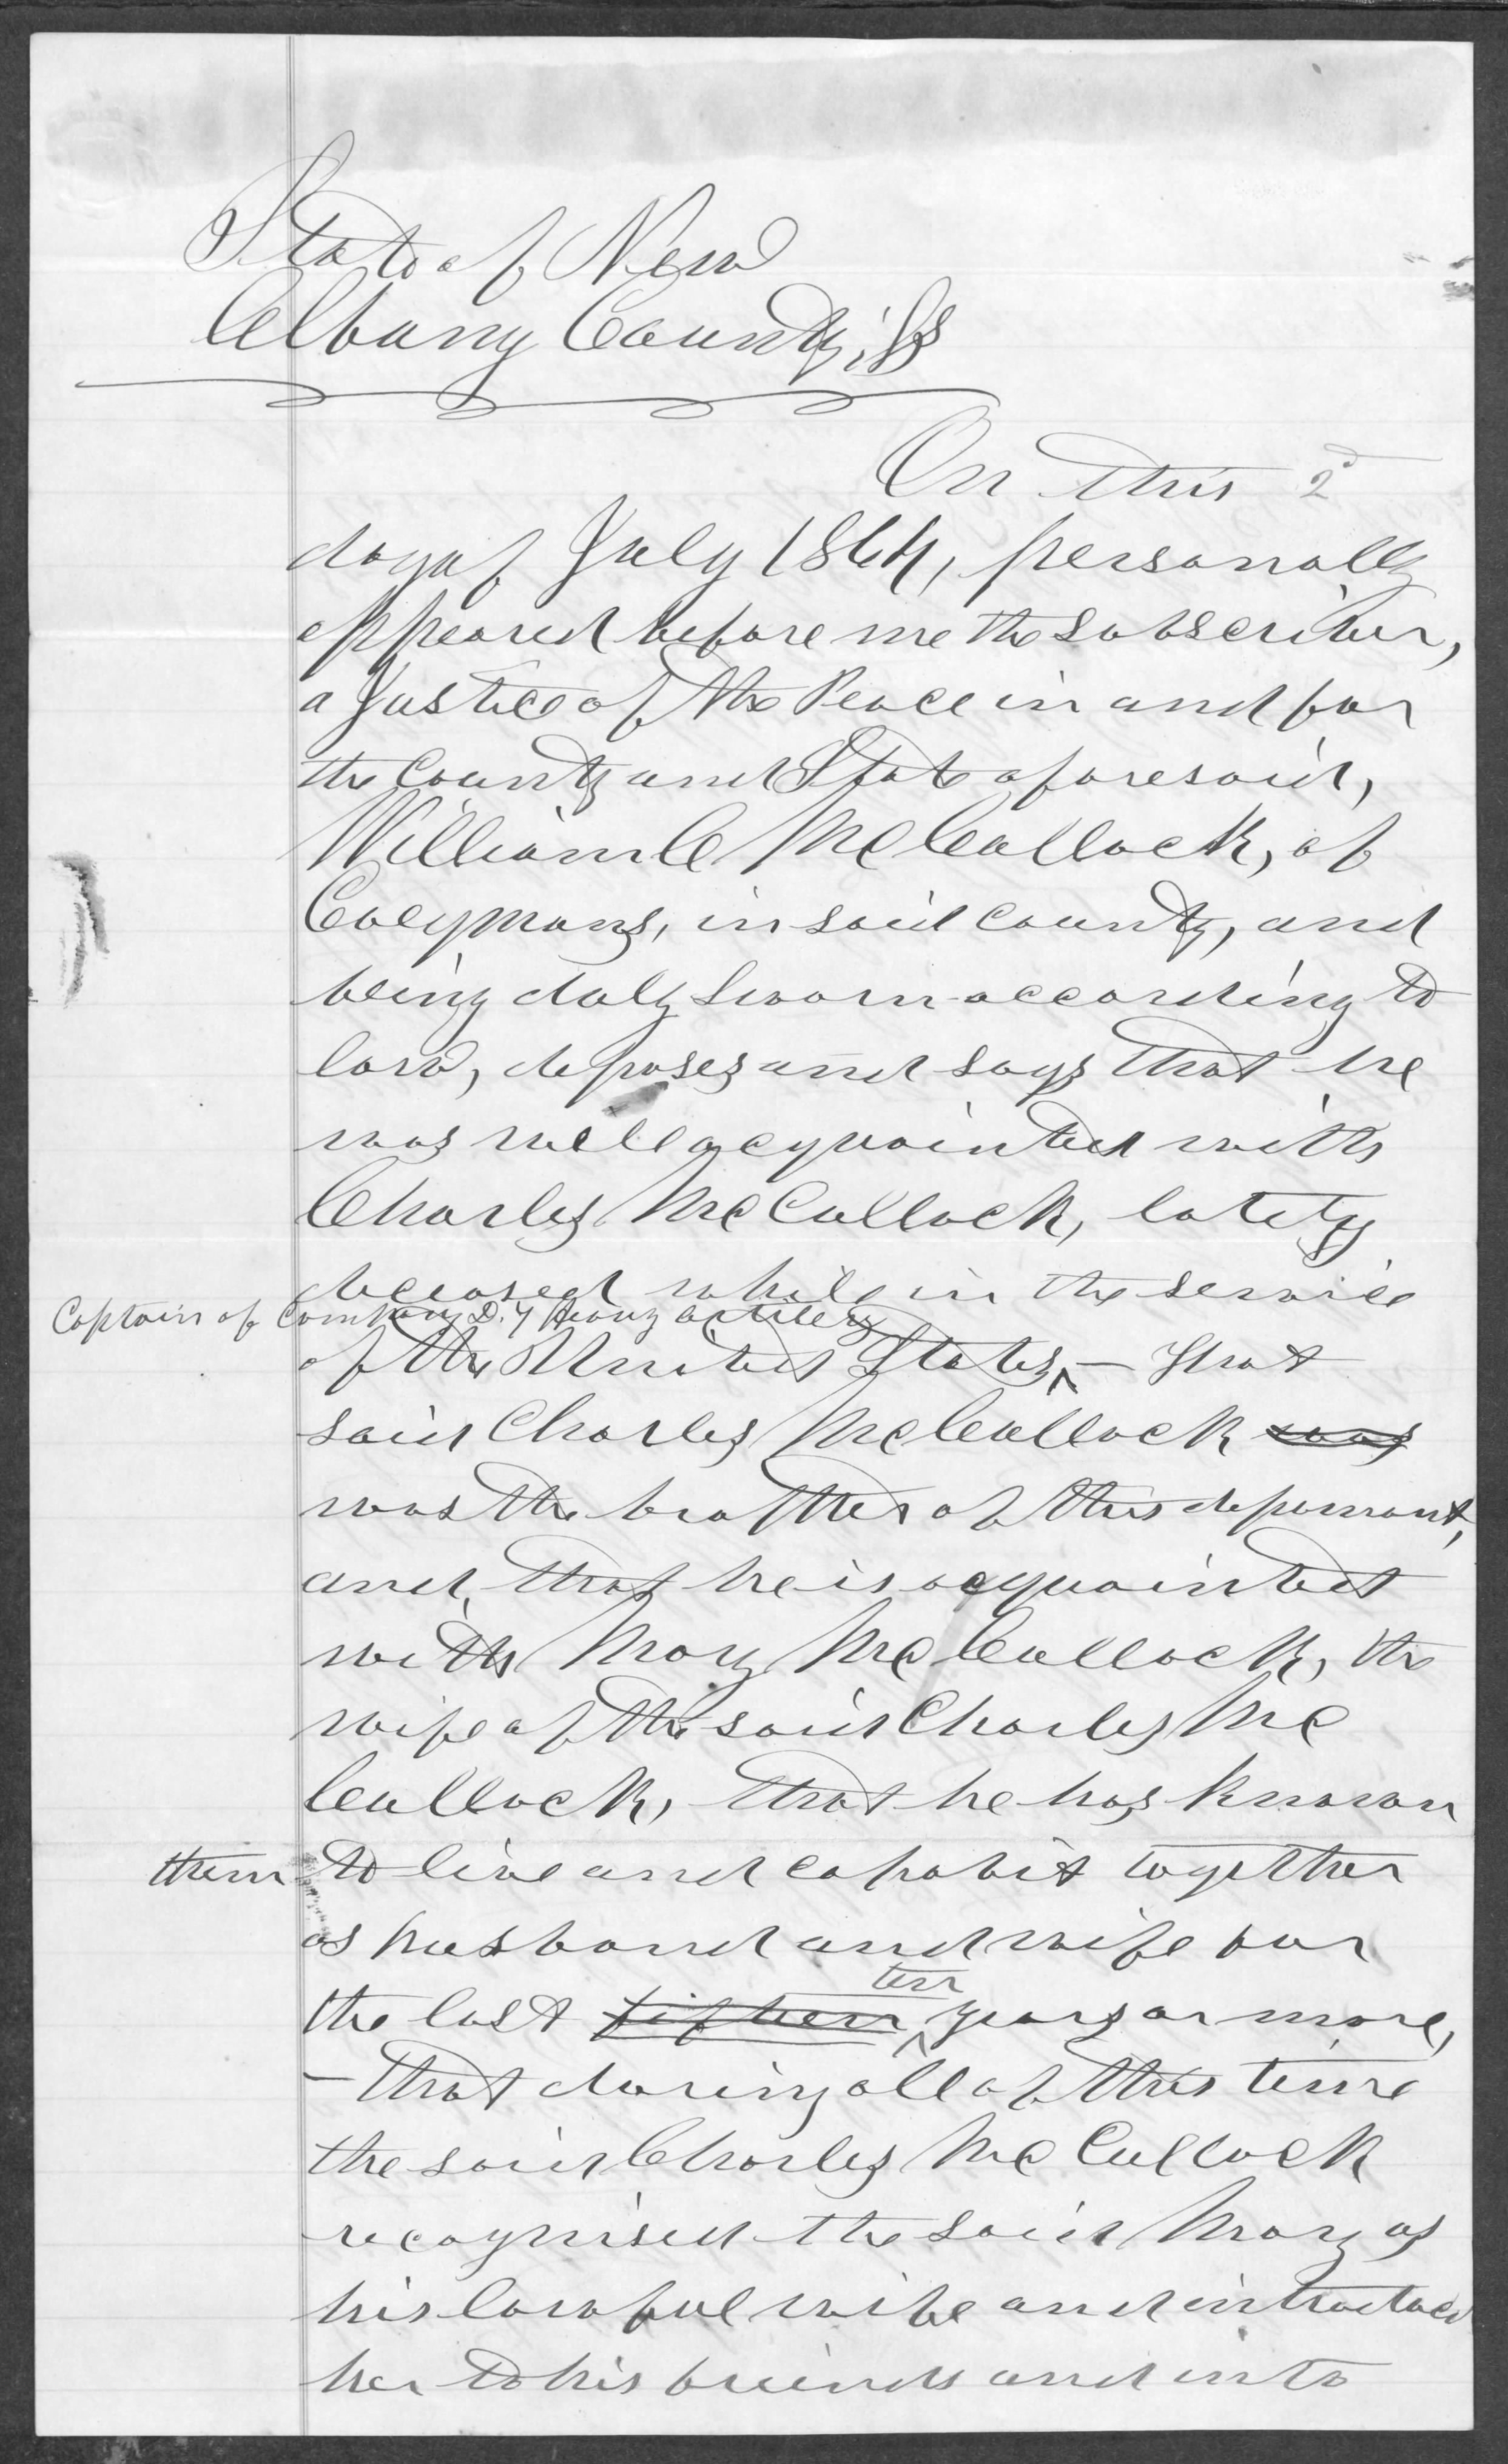 State of New
Albany County, ss
On this 2d
day of July 1864, personally
appeared before me the subscriber,
a Justice of the Peace in and for
the County and State aforesaid,
William C McCullock, of
Coeymans, in said county, and
being duly sworn according to
law, deposes and says that he
was well acquainted with
Charles McCullock, lately
deceased while in the service
Captain of Company D. 7 Heavy Artillery
of the United States, ^ — that
said Charles McCullock was
was the brother of this deponant,
and, that he is acquainted
with Mary McCullock, the
wife of the said Charles Mc
Cullock, that he has known
them to live and cohabit together
as husband and wife for
ten
the last fifteen ^ years or more,
— that during all of this time
the said Charles McCullock
recognised the said Mary as
his lawful wife and introduced
her to his friends and into